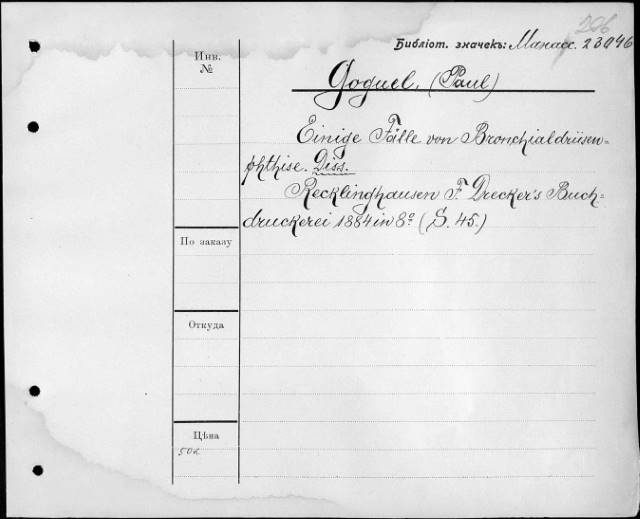 296
Библіот. значекъ: Манасс. 23946
Инв.
№
Goguel. (Paul)
Einige Fälle von Bronchialdrüsen=
phthise. Diss.
Recklinghausen F. Drecker's Buch-
druckerei 1884 in 8º (S. 45.)
По заказу
Откуда
Цѣна